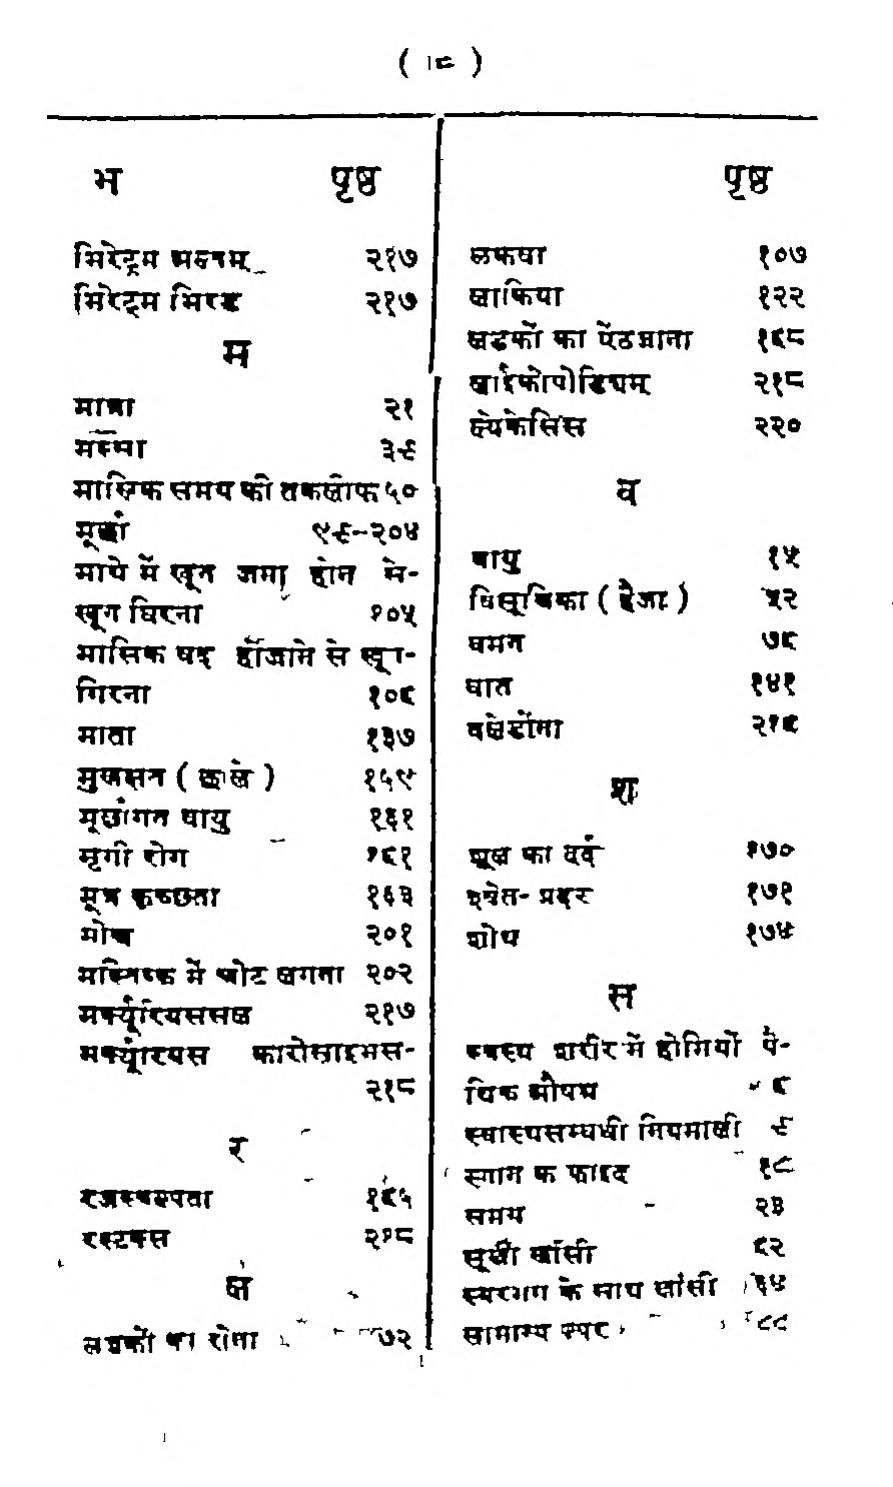 ( १८ )
भ पृष्ठ
भिरेट्रम अलवम् २१७
भिरेट्रम भिरड २१७
म
मात्रा २१
मस्सा ३९
मासिक समय की तकलीफ ५०
मूर्छा ९९-२०४
माथे में खून जमा होन से-
खून गिरना १०५
मासिक बंद होजाने से खून-
गिरना १०६
माता १३७
मुखक्षत ( छाले ) १५९
मूर्छागत वायु १६१
मृगी रोग १६१
मूत्र कृच्छता १६३
मोच २०१
मस्तिष्क में चोट लगना २०२
मर्क्यूरियससल २१७
मर्क्यूरियस कारोसाइभस-
२१८
र
रजस्वल्पता १६५
रस्टक्स २१८
ल
लडकों का रोना ७२
पृष्ठ
लकवा १०७
लाकिया १२२
लडकों का ऐंठजाना १६८
लाईकोपोडियम् २१८
ल्येकेसिस २२०
व
वायु १५
विसूचिका ( हैजा ) ५२
वमन ७६
वात १४१
वलेडोंना २१६
श
शूल का दर्द १७०
श्वेत-प्रदर १७१
शोथ १७४
स
स्वस्थ शरीर में होमियों पै-
थिक औषध ६
स्वास्थसम्बधी नियमावली ९
स्नान के फायद १८
समय २३
सूखी खाँसी ६२
स्वरभग के साथ खांसी ६४
सामान्य ज्वर ८८